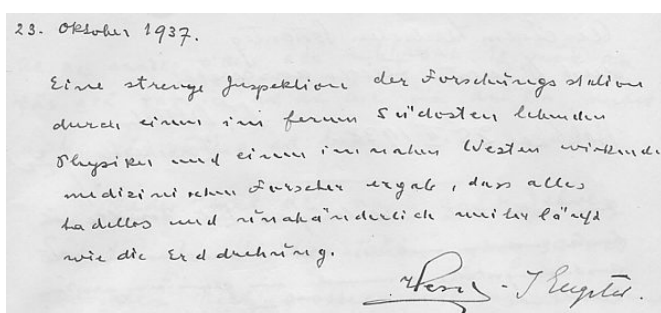 23. Oktober 1937.
Eine strenge Inspektion der Forschungsstation
durch einen im fernen Südosten lebenden
Physiker und einen im nahen Westen wirkende
medizinischen Forscher ergab, dass alles
tadellos und unabänderlich weiterläuft
wie die Erddrehung.
Hess - J Eugster.